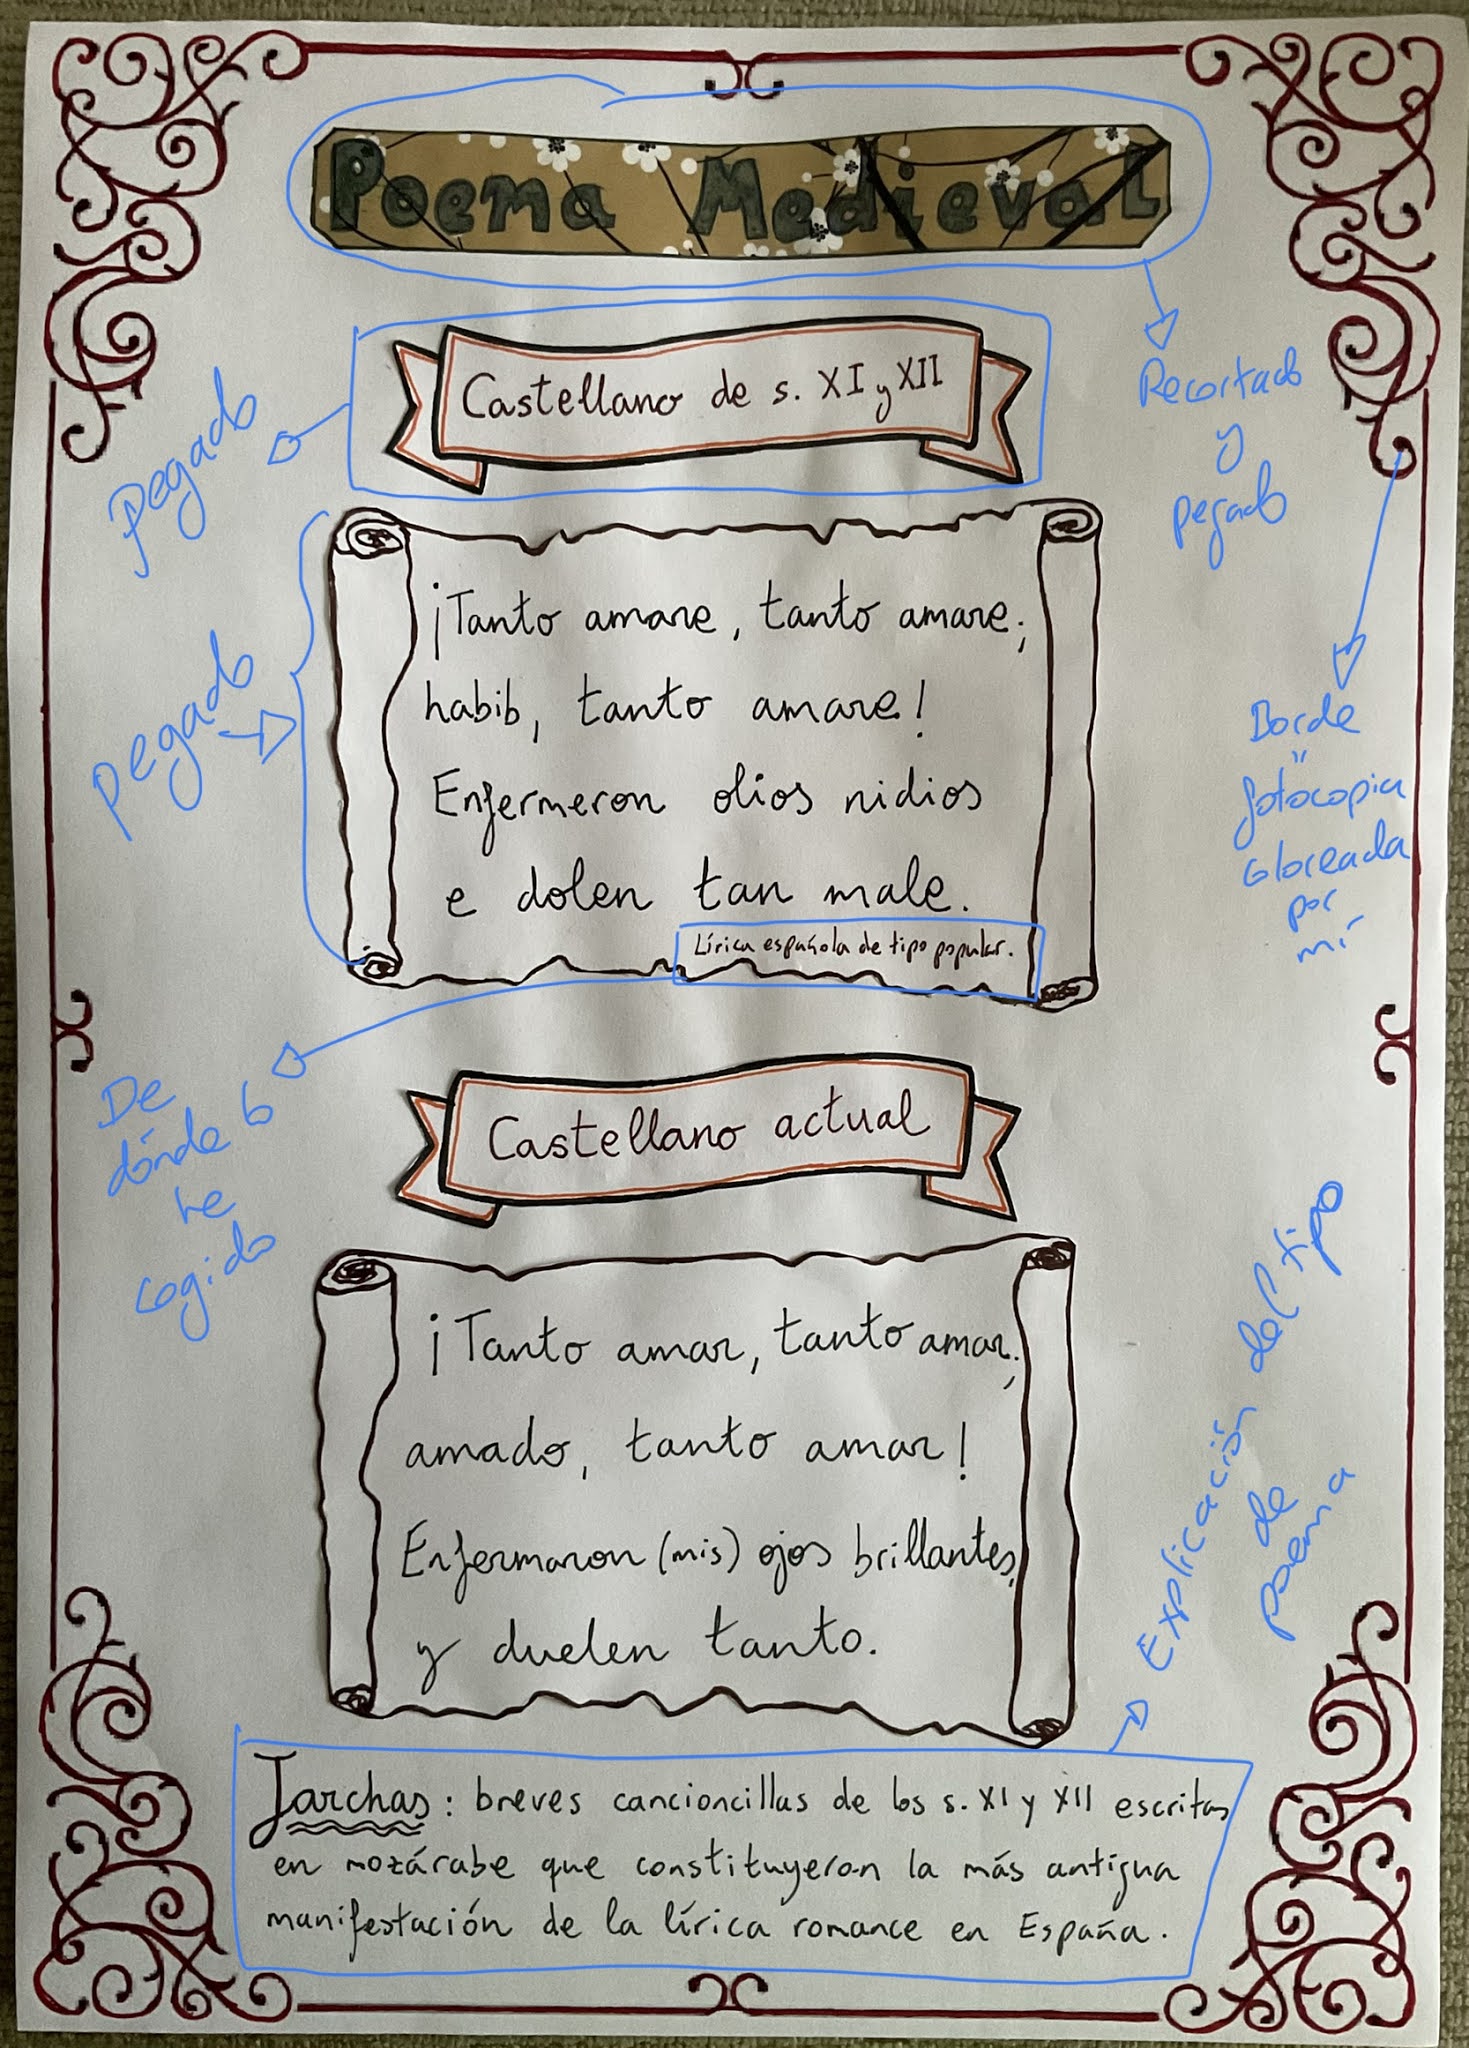 Poema Medieval
Castellano de s. XI y XII
Pegado
Recortado
y
pegado
¡Tanto amare, tanto amare;
habib, tanto amare!
Enfermeron olios nidios
e dolen tan male.
Lírica española de tipo popular.
pegado
Borde
=
fotocopia
coloreada
por
mí
De
dónde lo
he
cogido
Castellano actual
¡Tanto amar, tanto amar;
amado, tanto amar!
Enfermaron (mis) ojos brillantes,
y duelen tanto.
Explicación del tipo
de
poema
Jarchas: breves cancioncillas de los s. XI y XII escritas
en mozárabe que constituyeron la más antigua
manifestación de la lírica romance en España.